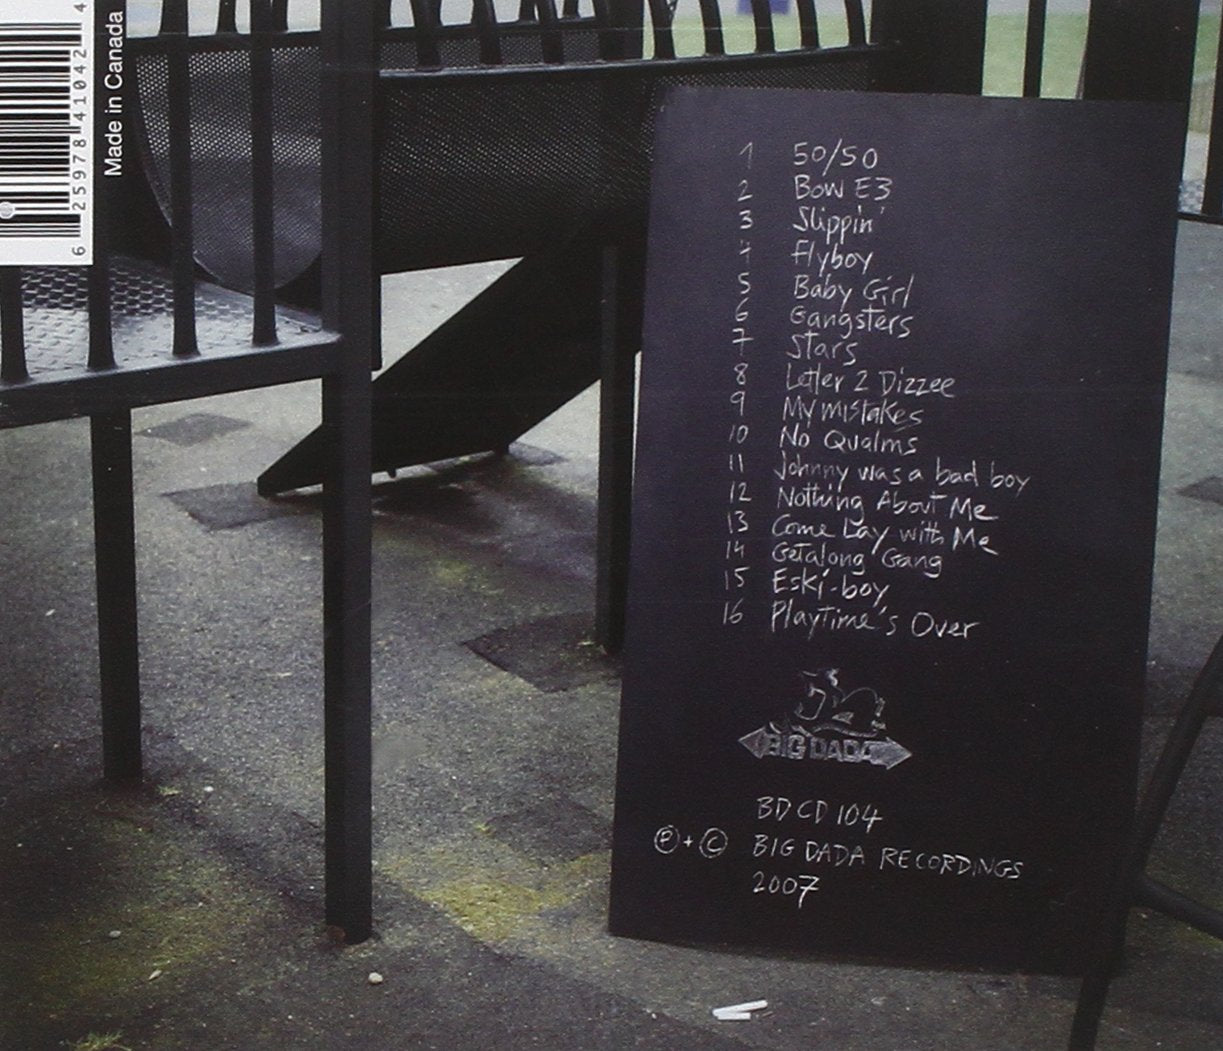 Made in Canada
6 25978 41042 4
1 50/50
2 Bow E3
3 Slippin'
4 Flyboy
5 Baby Girl
6 Gangsters
7 Stars
8 Letter 2 Dizzee
9 My mistakes
10 No Qualms
11 Johnny was a bad boy
12 Nothing About Me
13 Come Lay with Me
14 Getalong Gang
15 Eski-boy
16 Playtime's Over
BIG DADA
BDCD 104
Ⓟ + © BIG DADA RECORDINGS
2007